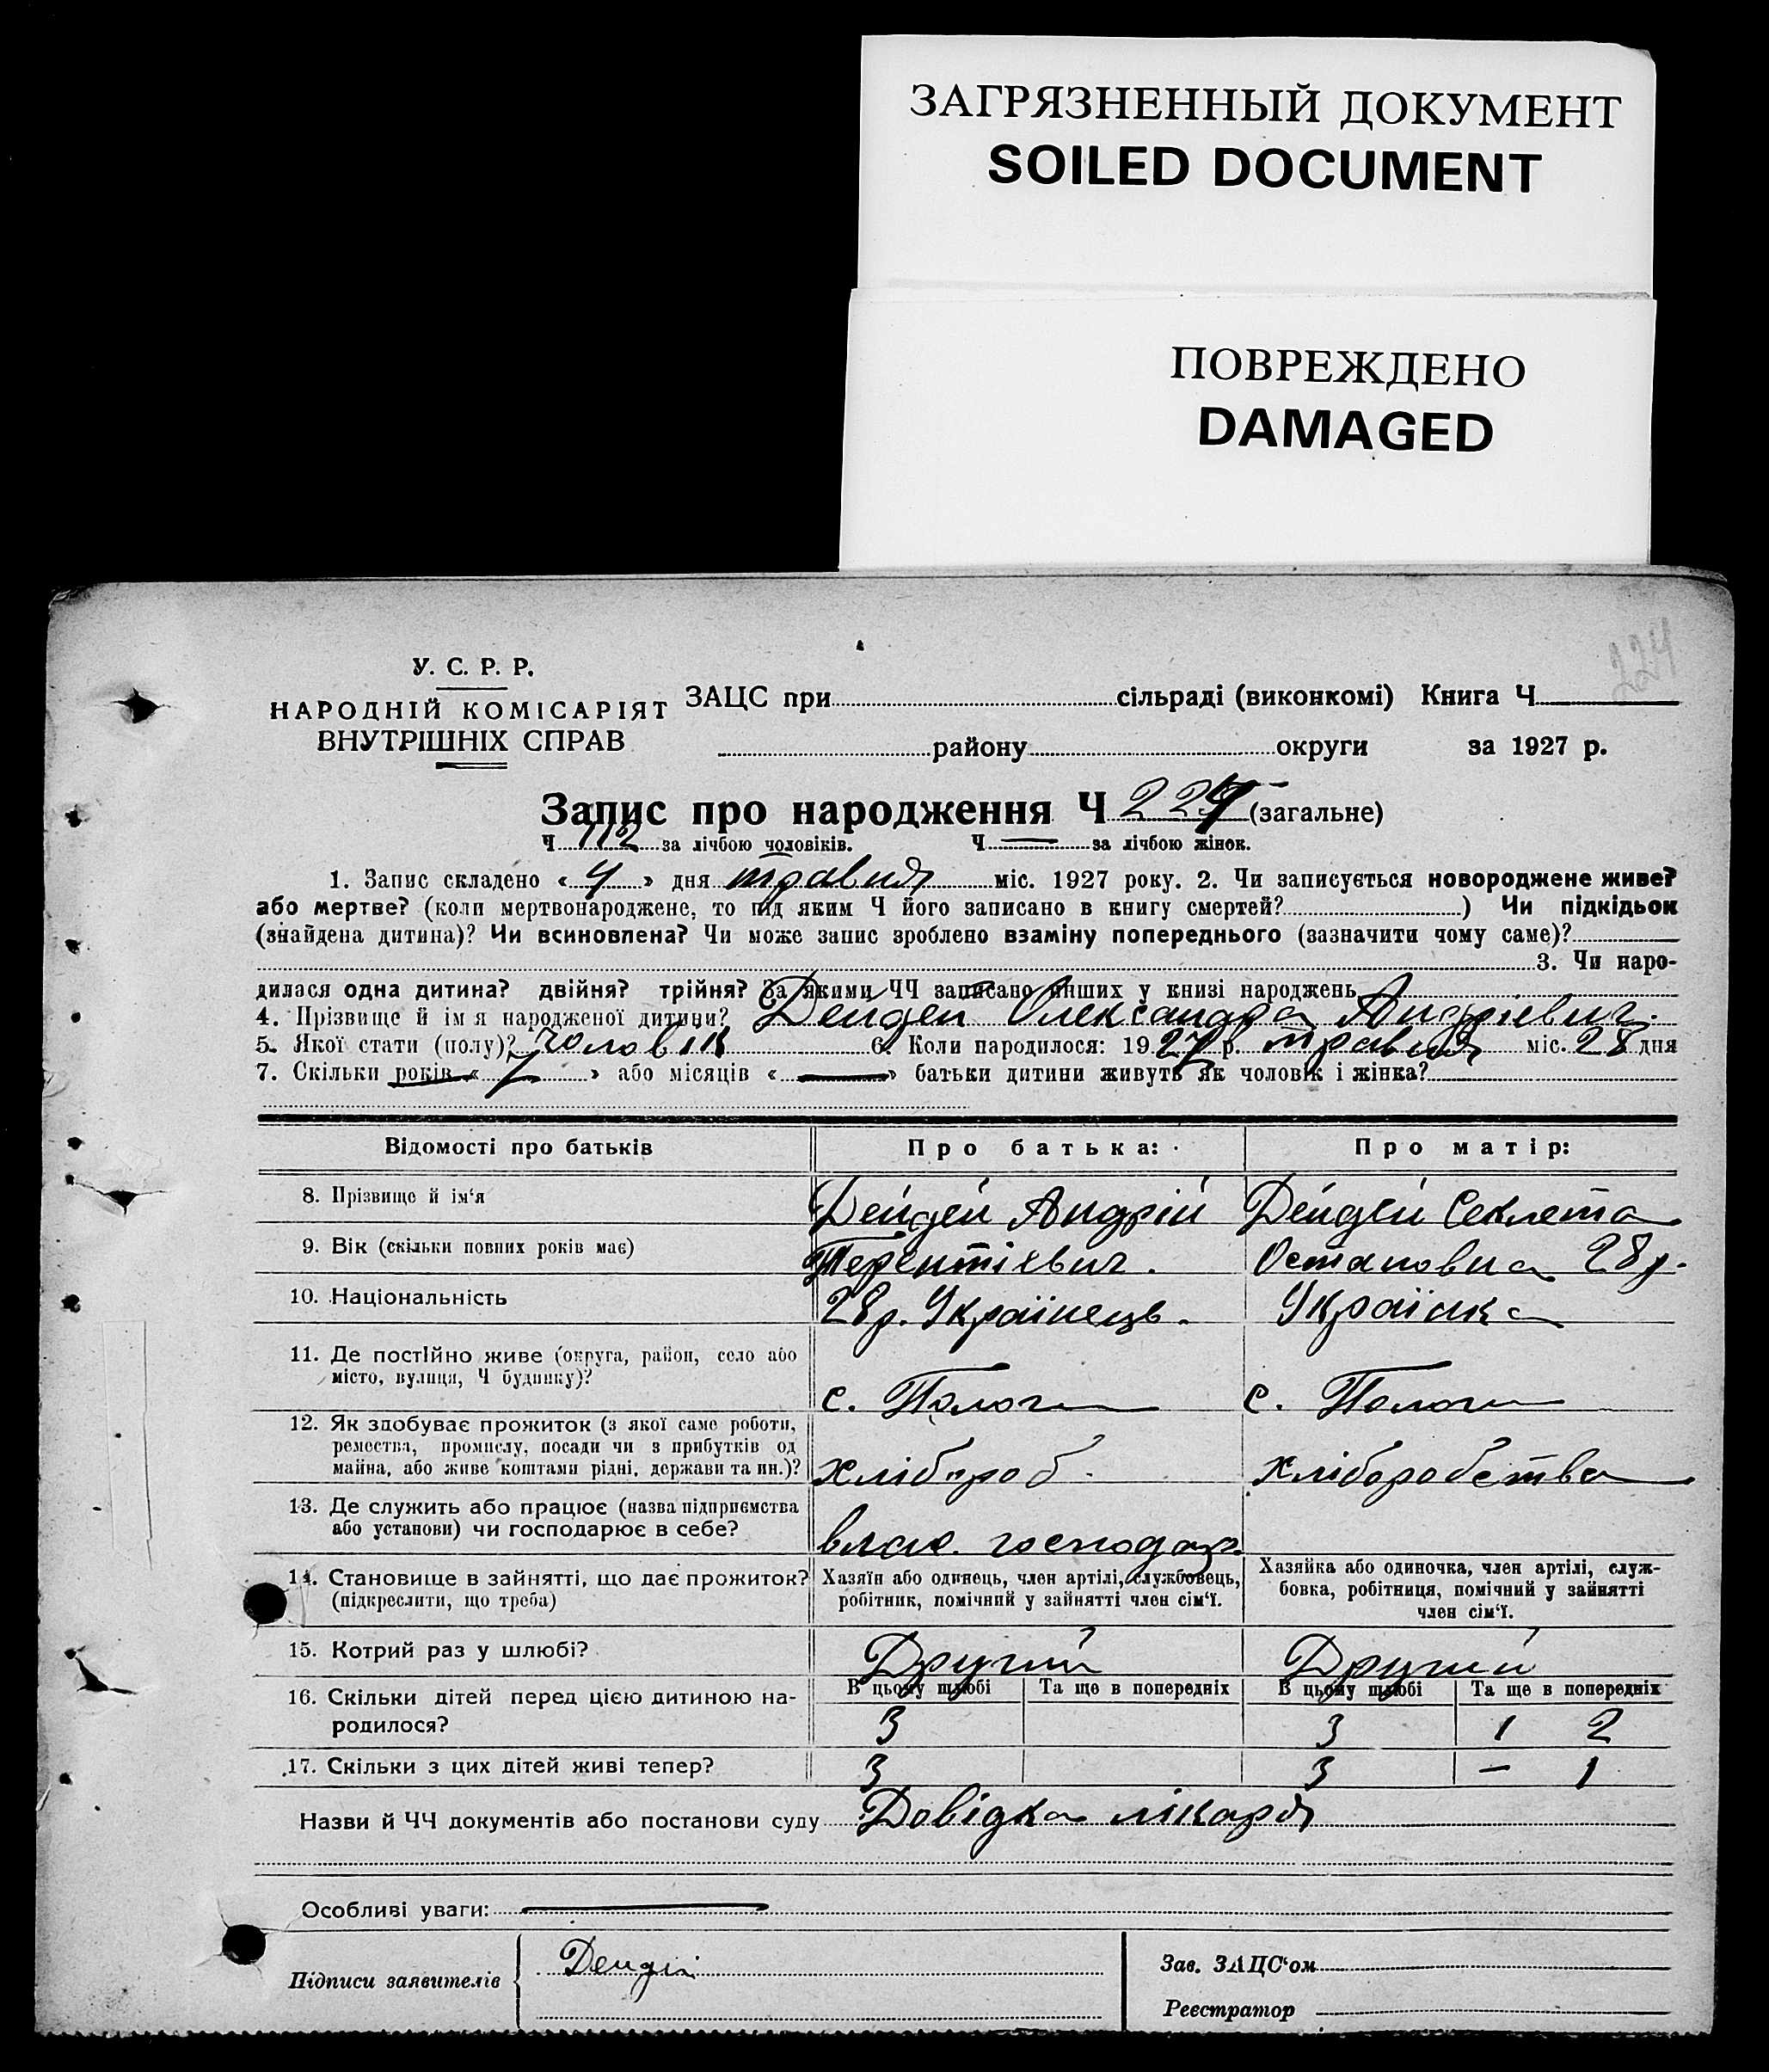 ЗАГРЯЗНЕННЫЙ ДОКУМЕНТ
SOILED DOCUMENT
ПОВРЕЖДЕНО
DAMAGED
224
У. С. Р. Р.
НАРОДНІЙ КОМІСАРІЯТ
ВНУТРІШНІХ СПРАВ
ЗАЦС при сільраді (виконкомі) Книга Ч
району округи за 1927 р.
Запис про народження Ч 224 (загальне)
Ч 112 за лічбою чоловіків. Ч — за лічбою жінок.
1. Запис складено « 4 » дня травня міс. 1927 року. 2. Чи записується новороджене живе?
або мертве? (коли мертвонароджене, то під яким Ч його записано в книгу смертей? ) Чи підкідьок
(знайдена дитина)? Чи всиновлена? Чи може запис зроблено взаміну попереднього (зазначити чому саме)?
3. Чи наро-
дилася одна дитина? двійня? трійня? За якими ЧЧ записано инших у книзі народжень
4. Прізвище й ім я народженої дитини? Дейдей Олександра Андрієвич.
5. Якої статі (полу)? чоловік 6. Коли народилося: 1927 р. травня міс. 28 дня
7. Скільки років « 7 » або місяців « — » батьки дитини живуть як чоловік і жінка?
Відомості про батьків Про батька: Про матір:
8. Прізвище й ім'я Дейдей Андрій Дейдей Секлета
9. Вік (скільки повних років має) Терентієвич. Остаповна 28 р.
10. Національність 28 р. Українець. Українка
11. Де постійно живе (округа, район, село або
місто, вулиця, Ч будинку)?
с. Пологи с. Пологи
12. Як здобуває прожиток (з якої саме роботи,
ремества, промислу, посади чи з прибутків од
майна, або живе коштами рідні, держави та ин.)? хлібороб. хліборобства
13. Де служить або працює (назва підприємства
або установи) чи господарює в себе?
влас. господар.
14. Становище в зайнятті, що дає прожиток?
(підкреслити, що треба)
Хазяїн або одинець, член артілі, службовець,
робітник, помічний у зайнятті член сім'ї.
Хазяйка або одиночка, член артілі, служ-
бовка, робітниця, помічний у зайнятті
член сім'ї.
15. Котрий раз у шлюбі? Другий Другий
16. Скільки дітей перед цією дитиною на-
родилося?
В цьому шлюбі Та ще в попередніх В цьому шлюбі Та ще в попередніх
3 3 1 2
17. Скільки з цих дітей живі тепер? 3 3 — 1
Назви й ЧЧ документів або постанови суду Довідка лікаря
Особливі уваги: —
Підписи заявителів
Дейдей
Зав. ЗАЦС'ом
Реєстратор